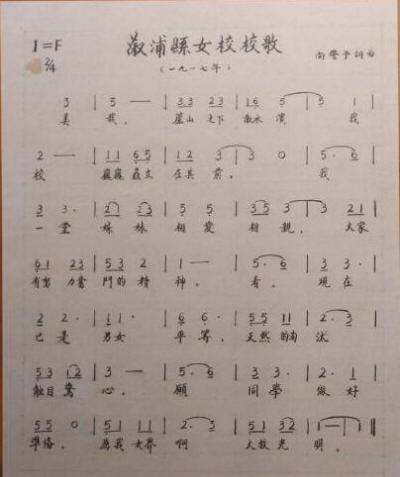 1=F 溆浦縣女校校歌
2/4 (一九一七年) 向警予詞曲
3 | 5 — | 33 23 | 16 5 | 5 1 |
美 哉, 廬山 之下 溆水 濱 我
2 — | 11 65 | 12 3 | 3 0 | 5 · 6 |
校 巍巍 矗立 在其 前。 我
3 3 · | 2 23 | 5 5 | 35 3 | 3 21 |
一 堂 姊 妹 相 愛 相 親, 大家
61 23 | 53 2 | 1 — | 5 · 6 | 3 3 · |
有努 力奮 鬥的 精 神。 看, 現 在
2 2 · | 1 1 · | 6 6 · | 55 11 | 2 · 3 |
已 是 男 女 平 等, 天然 的 淘 汰
53 12 | 3 — | 5 · 6 | 3 3 · | 2 · 1 |
觸目 驚 心。 願 同 學 做 好
55 0 | 51 11 | 2 · 2 | 51 32 | 1 · |
準備, 為我 女界 啊 大放 光 明。